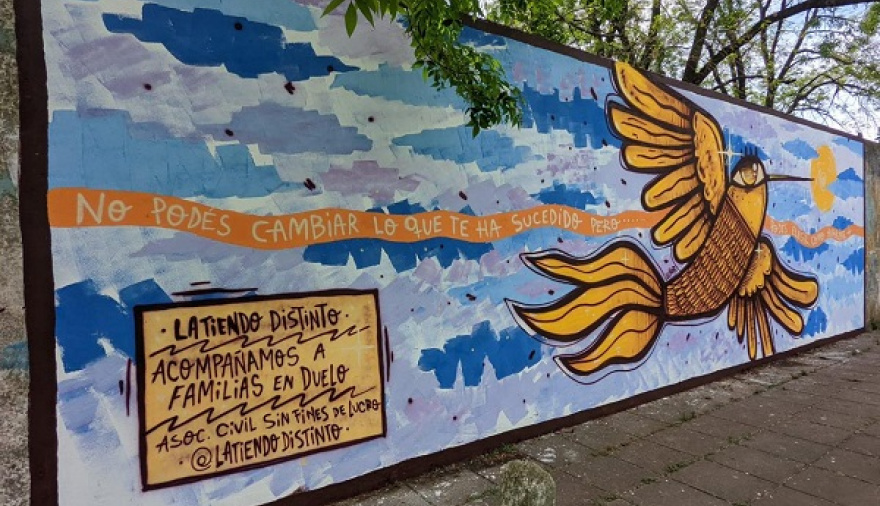 No PODÉS CAMBIAR LO QUE TE HA SUCEDIDO PERO......
· LATIENDO DISTINTO ·
ACOMPAÑAMOS A
FAMILIAS EN DUELO
ASOC. CIVIL SIN FINES DE LUCRO
· @LATIENDO DISTINTO ·